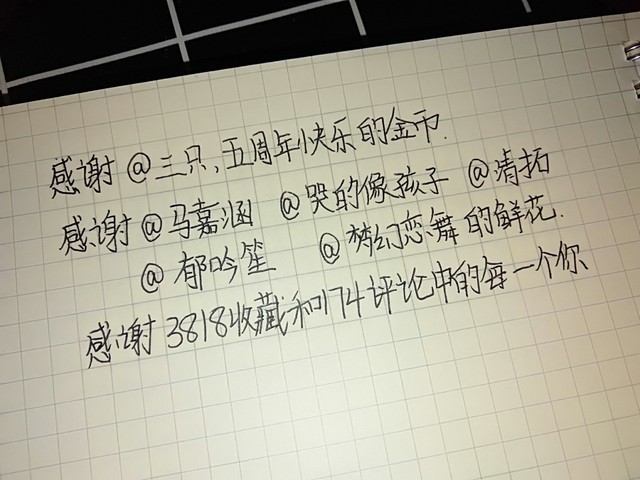 感谢@三只,五周年快乐的金币.
感谢@马嘉涵 @哭的像孩子 @清拓
@郁吟笙 @梦幻恋舞的鲜花.
感谢3818收藏和174评论中的每一个你